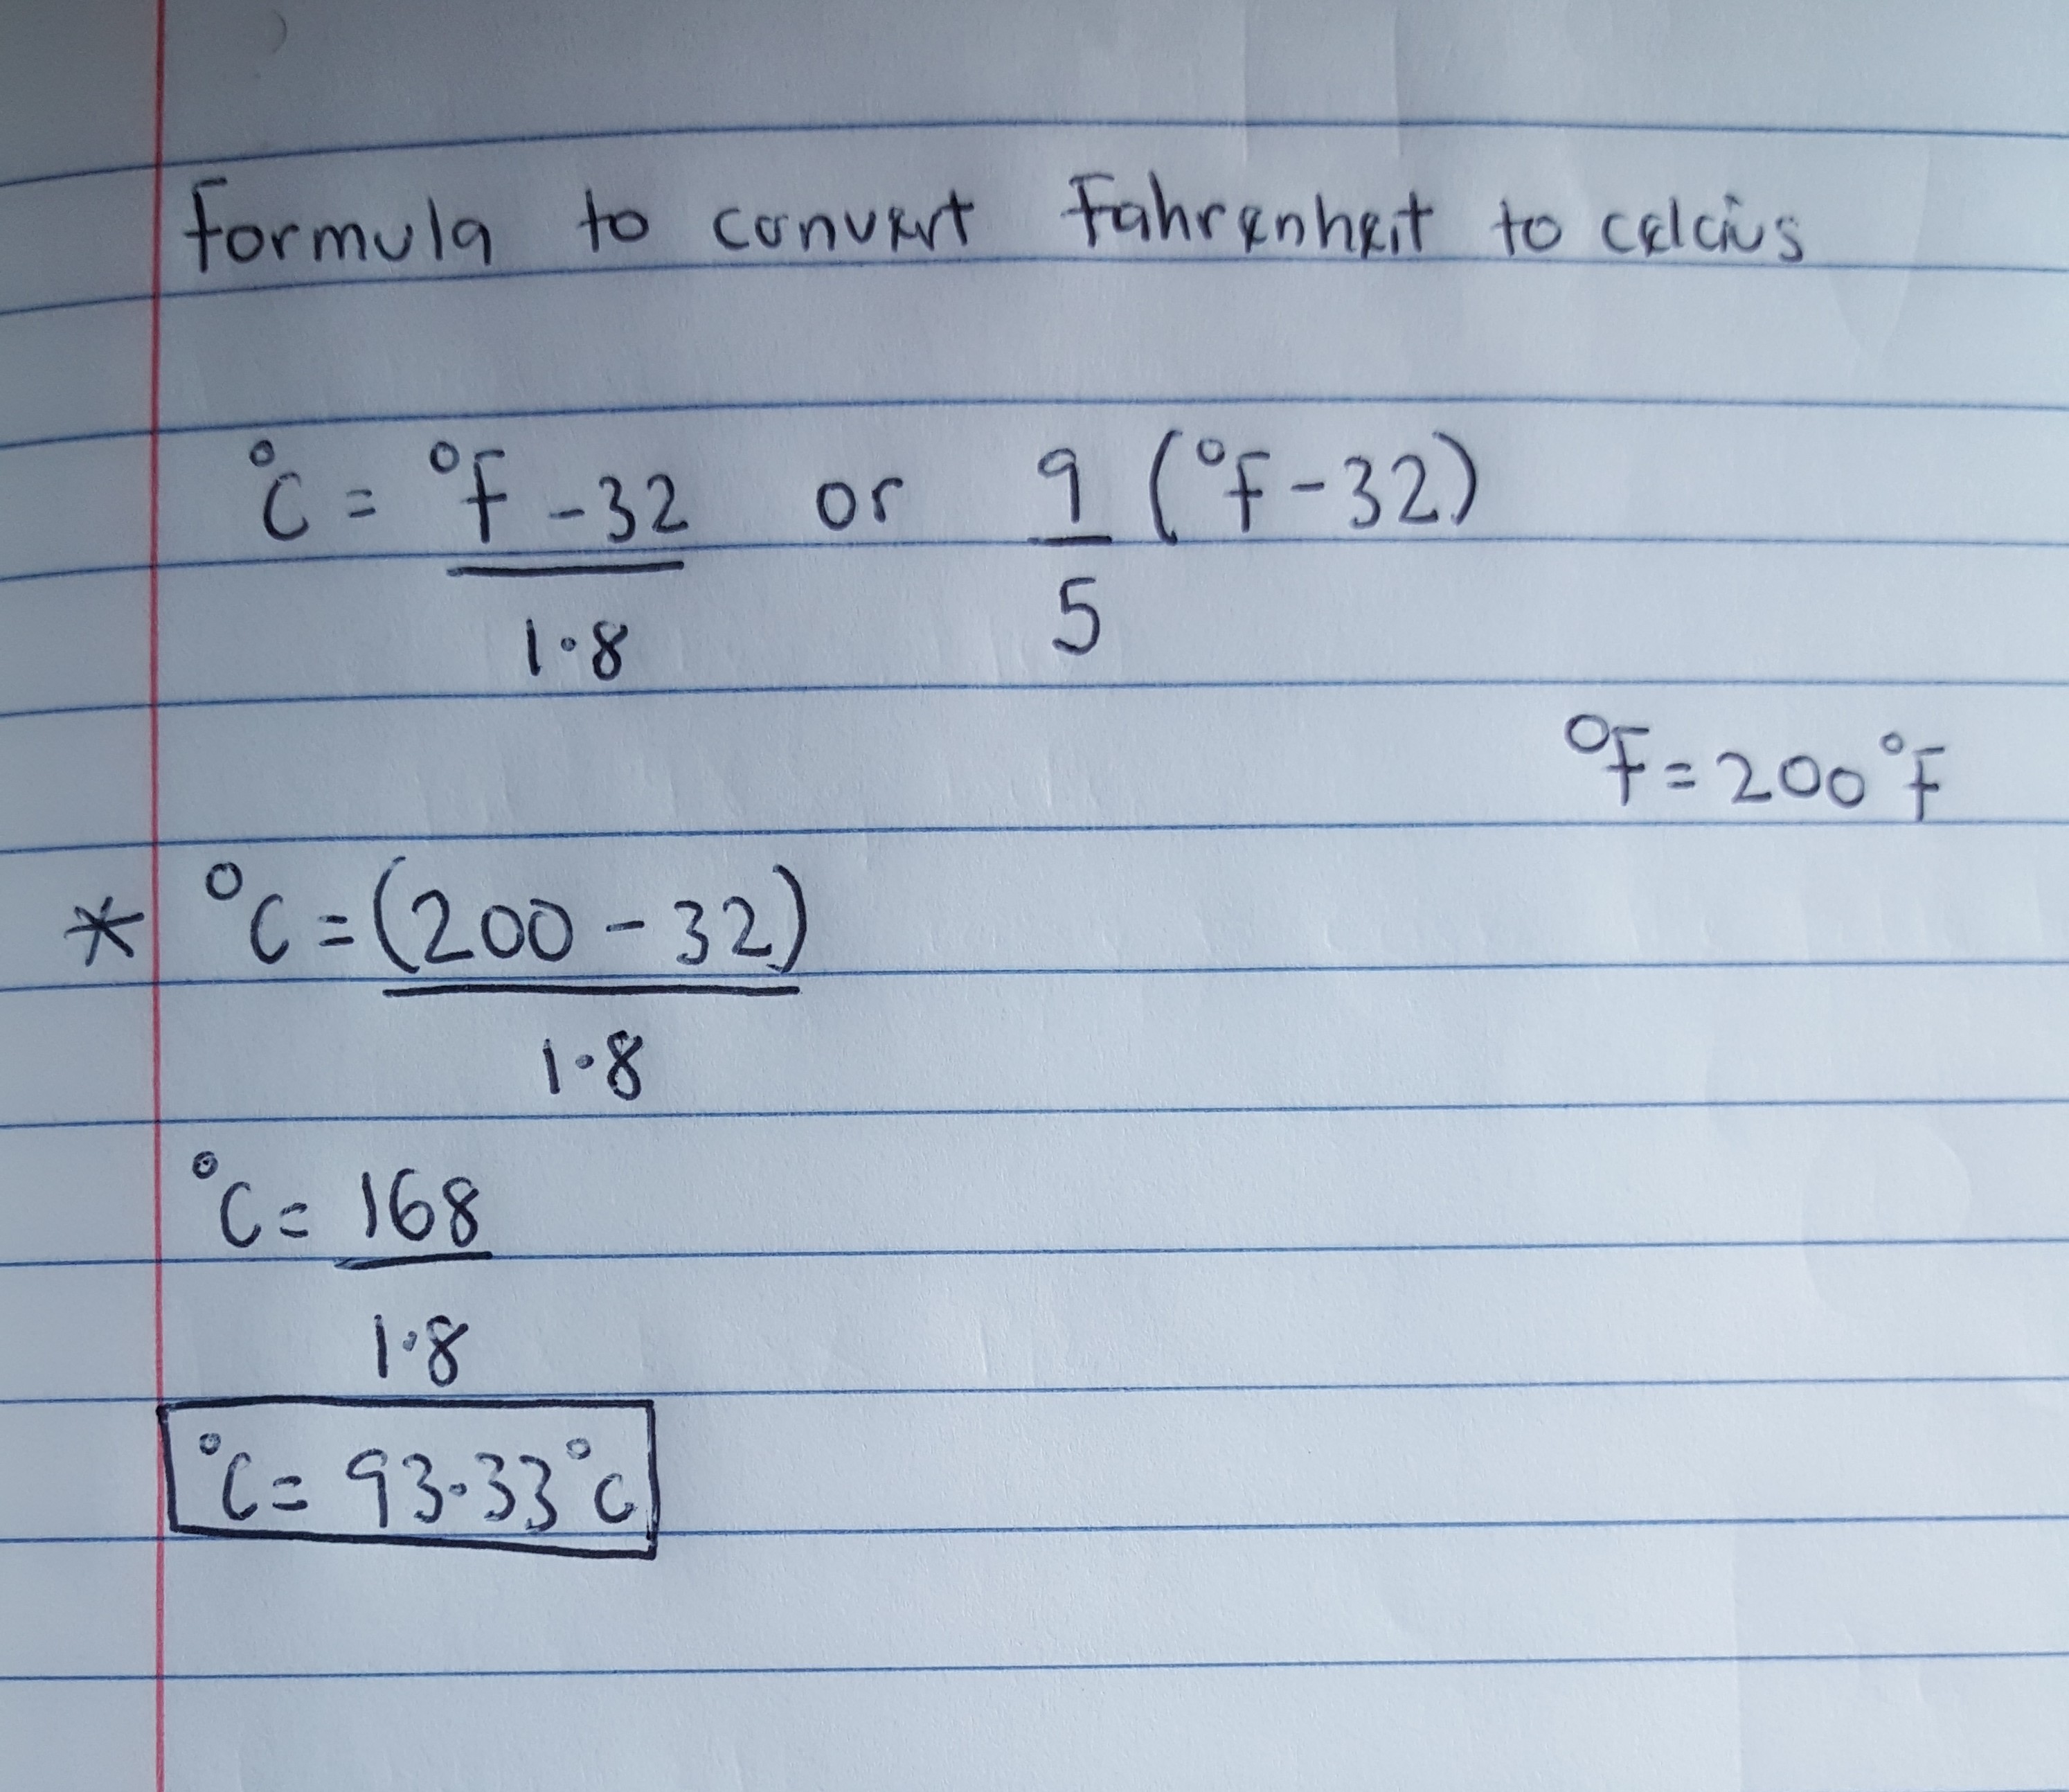 Formula to convert Fahrenheit to celcius
°C = °F - 32 / 1.8 or 9/5 (°F - 32)
°F = 200°F
* °C = (200 - 32) / 1.8
°C = 168 / 1.8
°C = 93.33°C